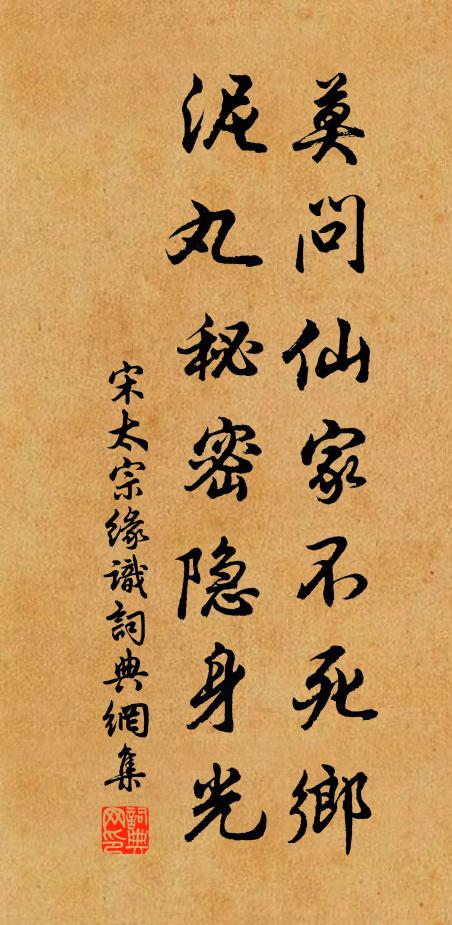 莫問仙家不死鄉
泥丸秘密隐身光
宋太宗緣識詞典網集
詞典网印